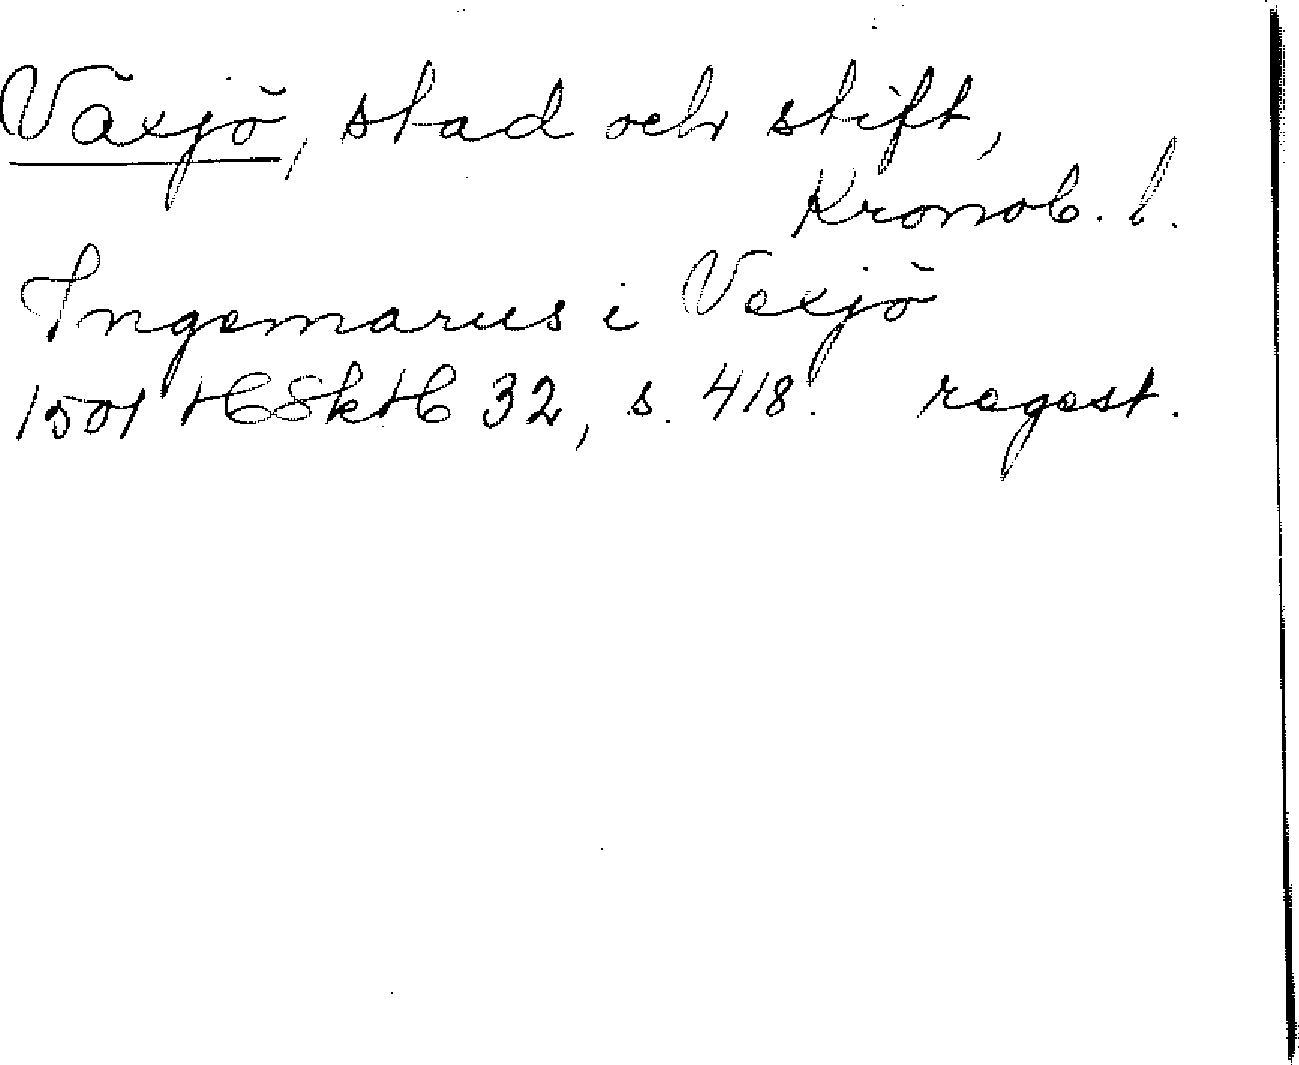 Växjö, stad och stift,
Kronob. l.
Ingemarus i Vexjö
1501 HSkH 32, s. 418. regest.